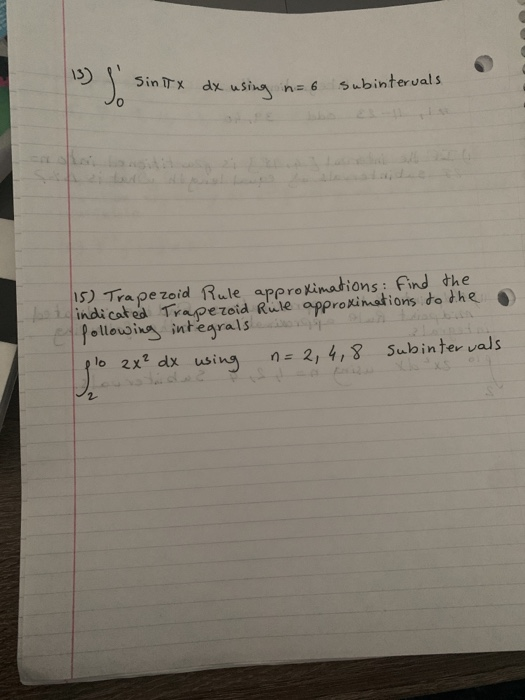 13) ∫₀¹ sin πx dx using n = 6 subintervals
15) Trapezoid Rule approximations: Find the
indicated Trapezoid Rule approximations to the
following integrals
∫₂¹⁰ 2x² dx using n = 2, 4, 8 Subintervals